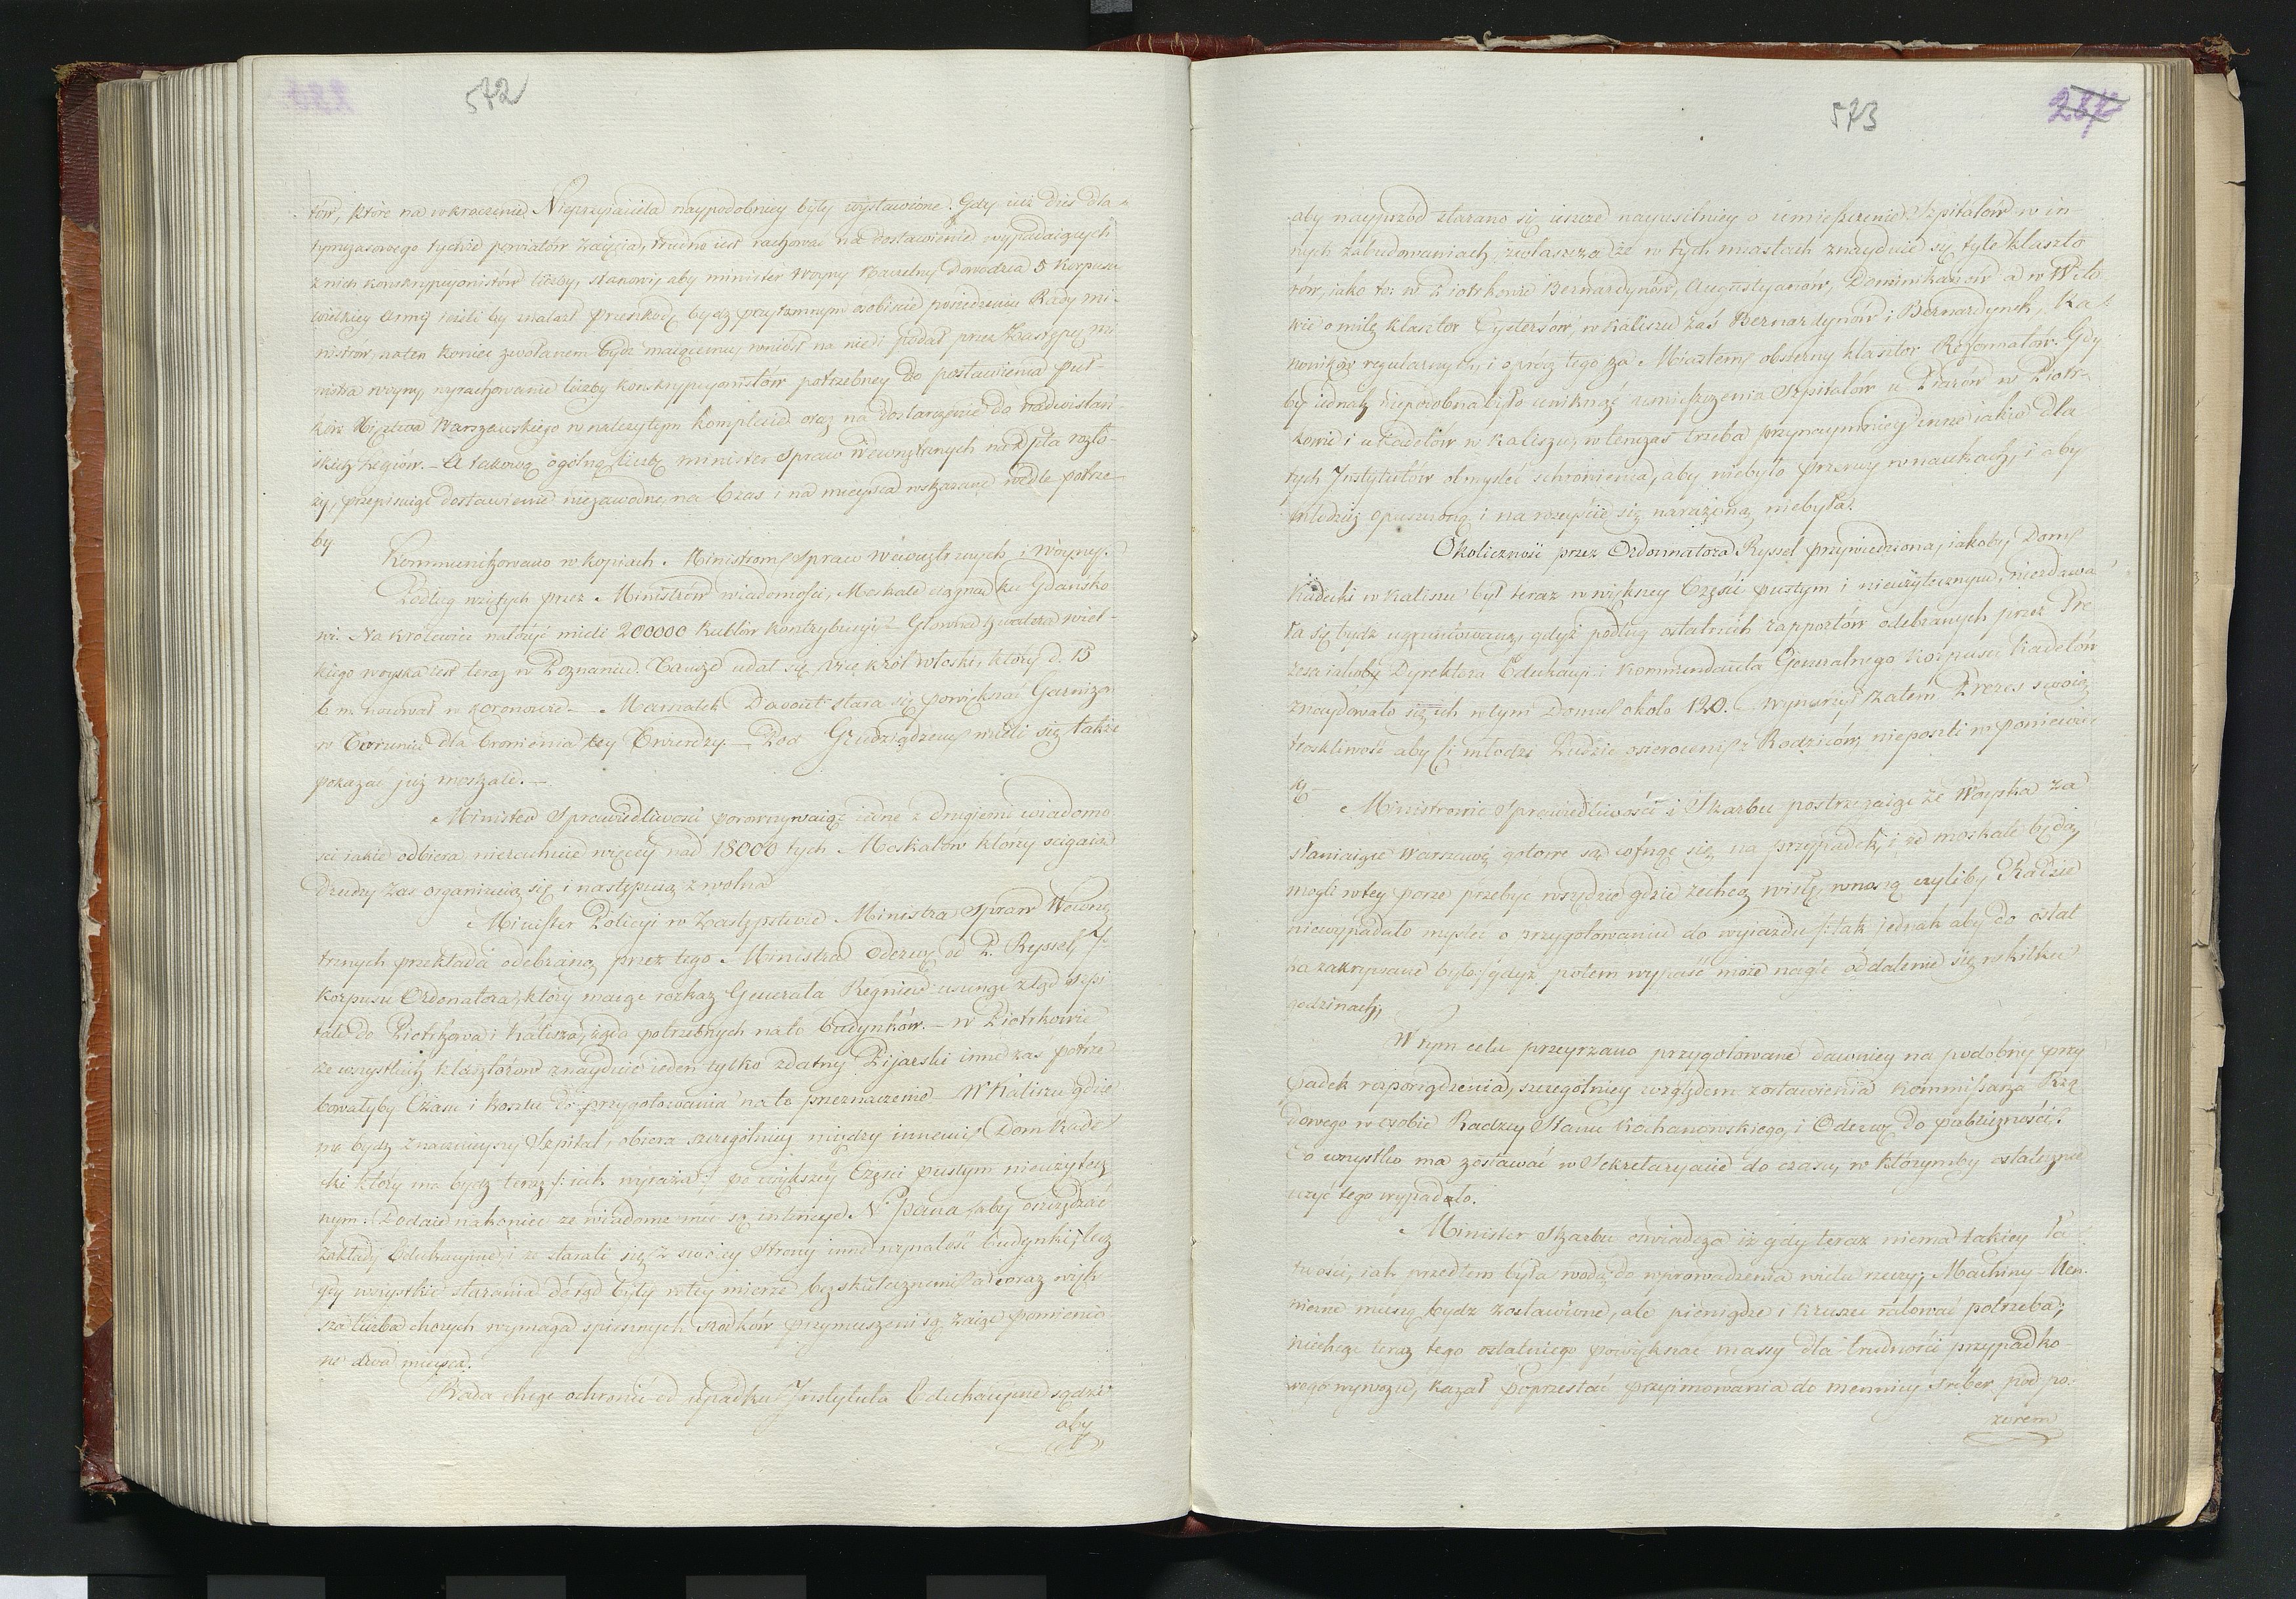 572
tów, które na wkroczenie Nieprzyjaciela naypodobniey były wystawione. Gdy iuż dziś dla
tymczasowego tychże powiatów zaięcia, trudno iest rachować na dostawienie wypadaiących
z nich konskrypcyonistów liczby, stanowi, aby minister woyny Naczelny Dowódzca 5 Korpusu
wielkiey Armij ieżeli by znalazł przeszkodę bydz przytomnym osobiście posiedzeniu Rady mi-
nistrow, na ten koniec zwołanem bydź maiącemu, wniósł na nie i podał przez Zastępcę mi
nistra woyny, wyrachowanie liczby konskrypcyonistów potrzebney do postawienia puł-
ków Xięztwa Warszawskiego w należytym komplecie oraz na dostarczenie do nadwiślań-
skich Legiów. - A takową ogólną liczbę minister Spraw Wewnętrznych na Dpta rozło-
ży, przepisuiąc dostawienie niezawodne, na Czas i na mieysca wskazane wedle potrze-
by
Kommunikowano w kopiach. Ministrom Spraw Wewnętrznych i Woyny.
Podług wziętych przez Ministrów wiadomości, Moskale ciągną ku Gdańsko
wi. Na Królewiec nałożyć mieli 200000 Rublów kontrybucyi. Główna kwatera wiel-
kiego woyska iest teraz w Poznaniu. Tamże udał się Vice król włoski, który d. 15
b. m. nocował w Koronowie. - Marszałek Davout stara się powiększać Garnizon
w Toruniu dla bronienia tey Twierdzy. - Pod Grudziądzem mieli się także
pokazać już moskale. -
Minister Sprawiedliwości porównywaiąc iedne z drugiemi wiadomo
ści iakie odbiera nierachuie więcey nad 18000 tych Moskalów którzy ścigaią
Drudzy zaś organizuią się i następuią z wolna
Minister Policyi w Zastępstwie Ministra Spraw Wewnę
trznych przekłada odebraną przez tego Ministra Odezwę od P. Ryssel 7.
Korpusu Ordonatora, który maiąc rozkaz Generała Regnier usunąć ztąd Szpi
tale do Piotrkowa i Kalisza, żąda potrzebnych na to budynków. - w Piotrkowie
ze wszystkich klasztorów znayduie ieden tylko zdatny Pijarski inne zaś potrze
bowałyby Czasu i kosztu do przygotowania na to przeznaczenie - W Kaliszu gdzie
ma bydz znacznieyszy Szpital, obiera szczególniey między innemi Dom Kade
cki który ma bydz teraz /: iak wyraża :/ po większey Części pustym nieużytecz
nym. Dodaie nakoniec ze wiadome mu są intencye N. Pana, aby oszczędzać
zakłady Edukacyine, i że starali się z swoiey strony inne wynaleść budynki; lecz
gdy wszystkie starania dotąd były w tey mierze bezskutecznemi a coraz więk-
sza liczba chorych wymaga spiesznych srodków przymuszeni są zaiąć pomienio-
ne dwa mieysca.
Rada chcąc ochronić od upadku Instytuta Edukacyine sądzi
aby
573
287
aby nayprzód starano się ieszcze nayusilniey o umieszczenie Szpitalów w in-
nych zabudowaniach, zwłaszcza że w tych miastach znayduie się tyle klaszto
rów, iako to: w Piotrkowie Bernardynów, Augustyanów, Dominikanów a w Wito
wie o milę klasztor Cystersów, w Kaliszu zaś Bernardynów i Bernardynek, Ka-
noników regularnych, i oprócz tego za Miastem obszerny klasztor Reformatów. Gdy
by iednak niepodobna było uniknąć umieszczenia Szpitalów u Piarów w Piotr-
kowie i u Kadetów w Kaliszu, w tenczas trzeba przynaymniey inne iakie dla
tych Instytutów obmyśleć schronienia, aby niebyło przerwy w naukach, i aby
młodzież opuszczoną i na rozeyście się narażoną niebyła.
Okoliczność przez Ordonnatora Ryssel przywiedziona, iakoby Dom
Kadecki w Kaliszu był teraz w większey Części pustym i nieużytecznym, niezdawa
ła się bydź ugruntowaną, gdyż podług ostatnich rapportów odebranych przez Pre
zesa iakoby Dyrektora Edukacyi i Kommendanta Generalnego Korpusu Kadetów
znaydowało się ich w tym Domu około 120. Wynurzył zatem Prezes swoią
troskliwość aby ci młodzi Ludzie osieroceni z Rodziców, nieposzli w poniewier
kę
Ministrowie Sprawiedliwości i Skarbu postrzegaiąc że Woyska za
słaniaiące Warszawę gotowe są cofnąć się na przypadek, i że moskale będą
mogli w tey porze przebyć wszędzie gdzie zechcą wisłę, wnoszą czyliby Radzie
niewypadało myśleć o przygotowaniu do wyiazdu /: tak jednak aby do ostat
ka zakrywane było :/ gdyż potem wypaść może nagłe oddalenie się w kilku
godzinach,
W tym celu przeyrzano przygotowane dawniey na podobny przy
padek rozporządzenia, szczególniey względem zostawienia Kommissarza Rzą
dowego w osobie Radzcy Stanu Kochanowskiego, i Odezwę do publiczności.
To wszystko ma zostawać w Sekretaryacie do czasu, w którymby ostatecznie
użyć tego wypadało.
Minister Skarbu oświadcza iż gdy teraz niema takiey ła
twości, iak przedtem była wodą, do wprowadzenia wielu rzeczy; Machiny Men-
niczne muszą bydz zostawione, ale pieniądze i kruszec ratować potrzeba;
niechcąc teraz tego ostatniego powiększać massy dla trudności przypadko-
wego wywozu, kazał poprzestać przyimowania do mennicy sreber pod po-
zorem